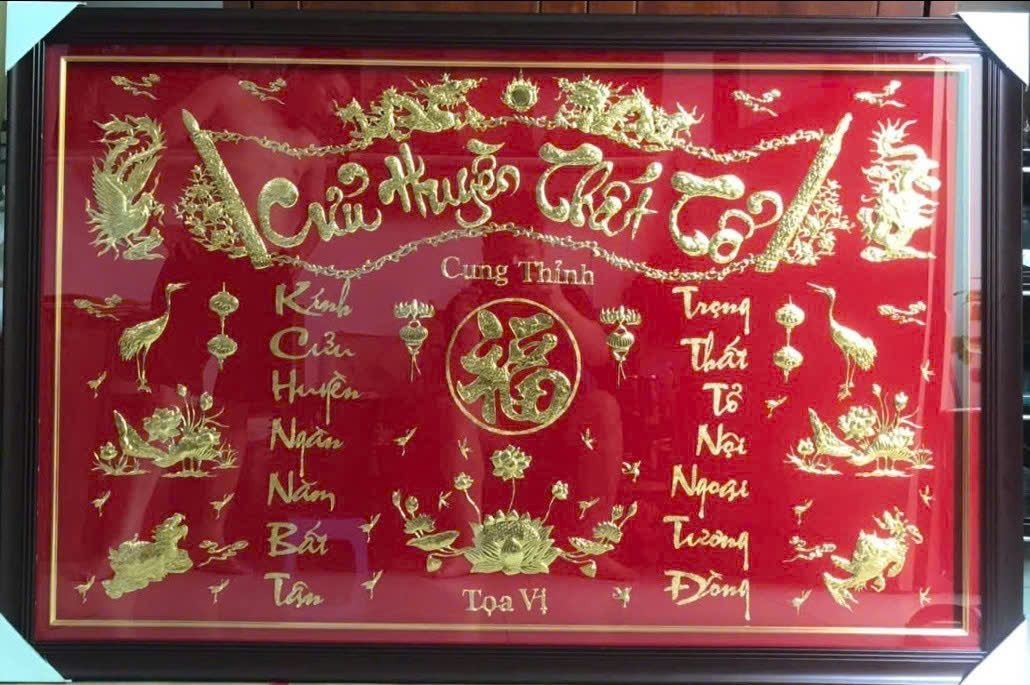 Cửu Huyền Thất Tổ
Cung Thỉnh
Kính
Cửu
Huyền
Ngàn
Năm
Bát
Tân
福
Trọng
Thất
Tổ
Nội
Ngoại
Tường
Đồng
Tọa Vị